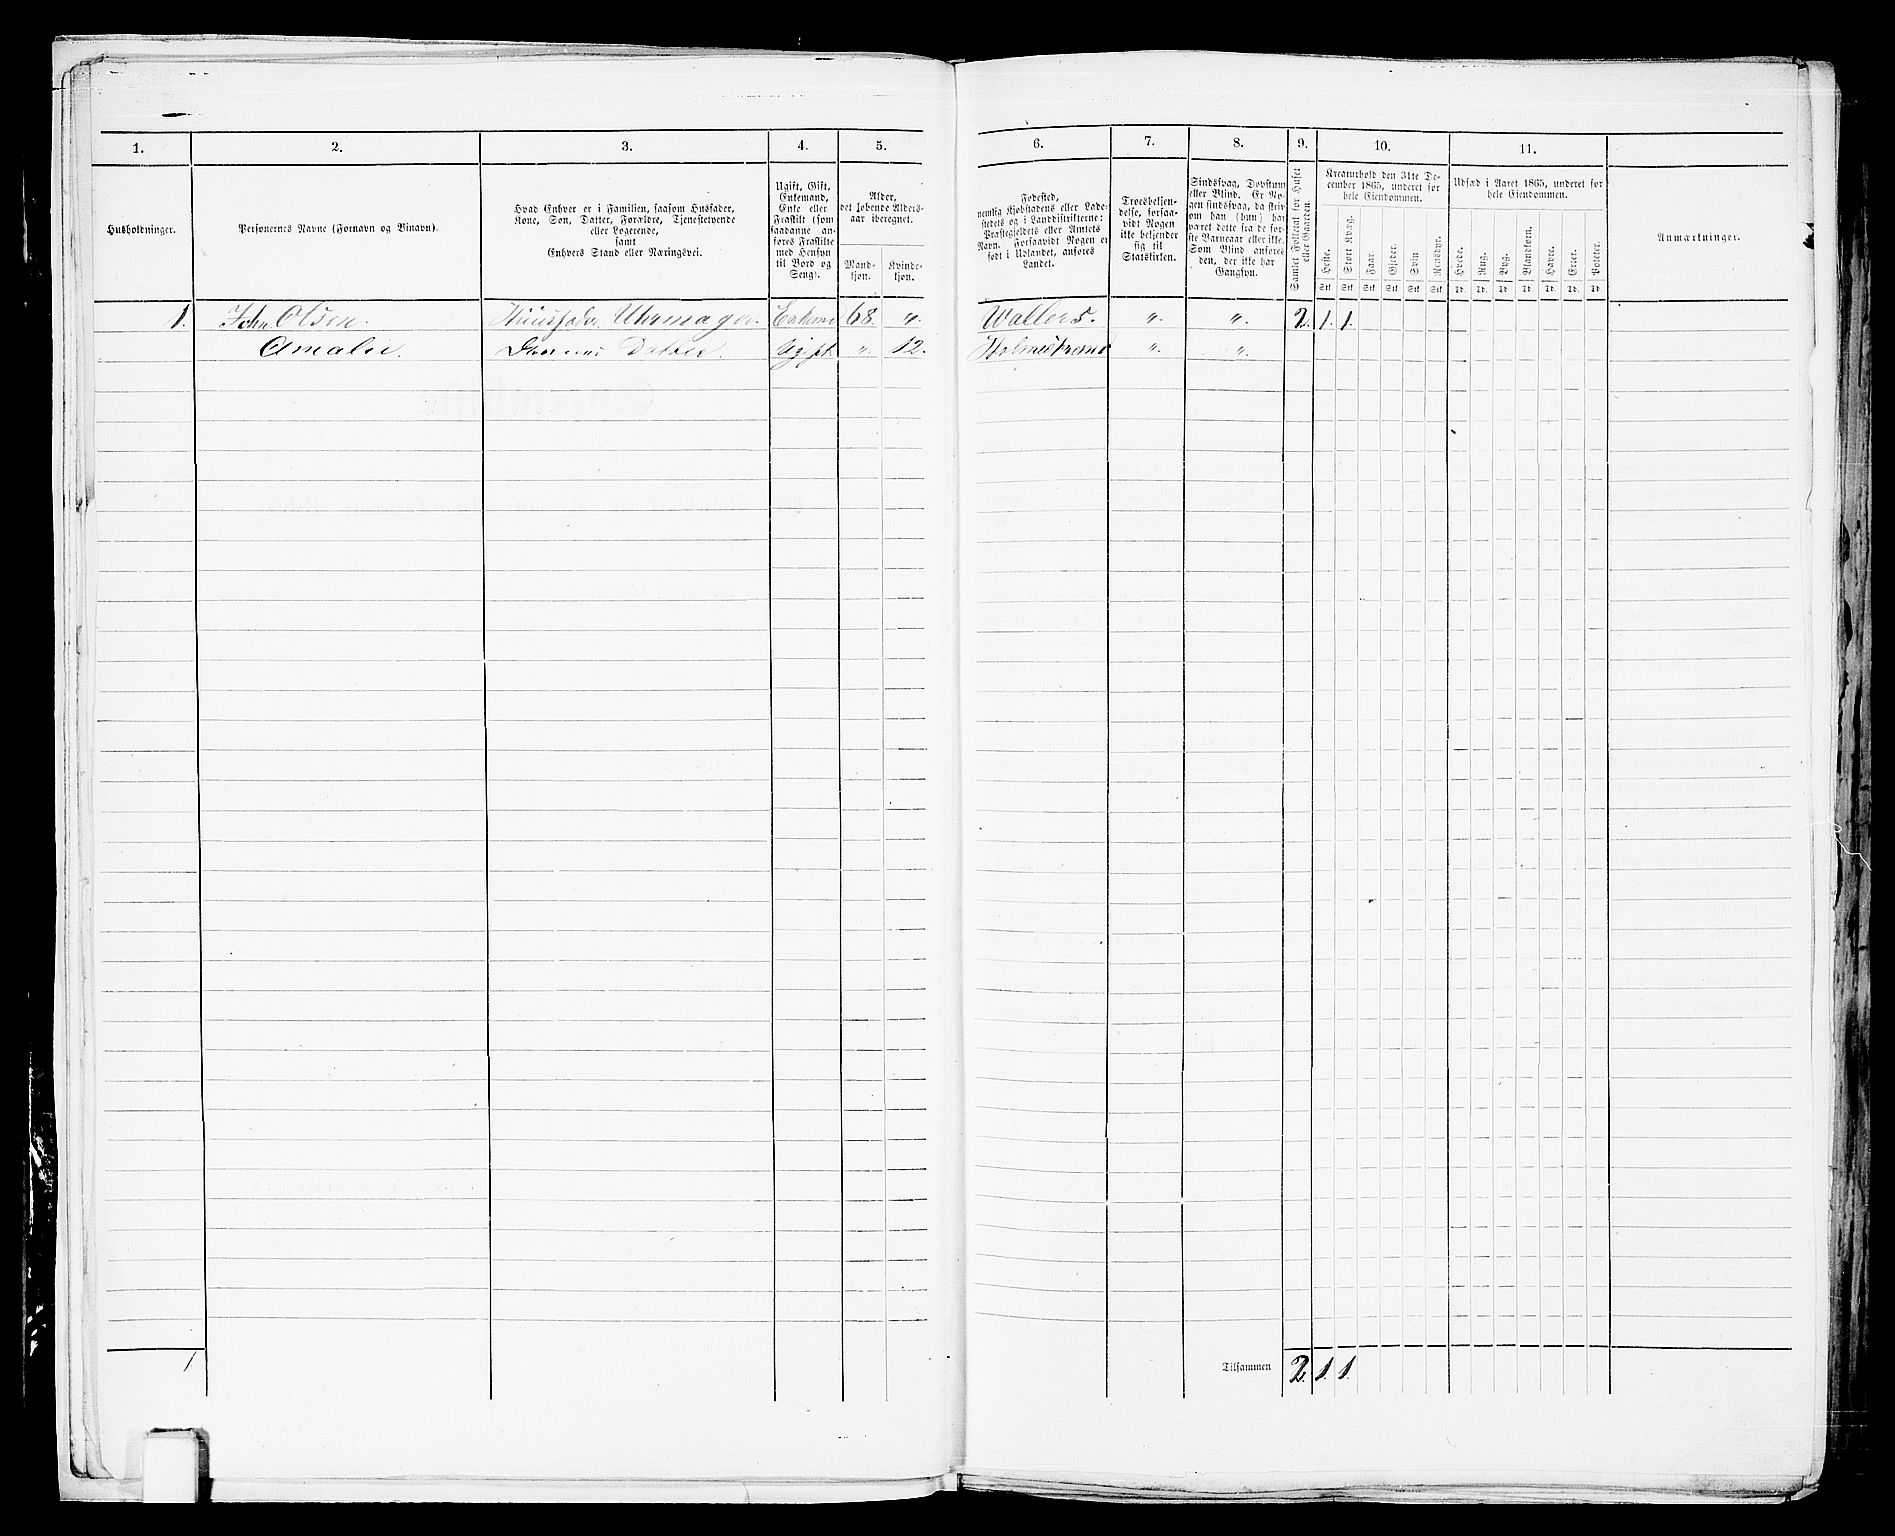 1.
2.
3.
4.
5.
6.
7.
8.
9.
10.
11.
Husholdninger.
Personernes Navne (Fornavn og Binavn).
Hvad Enhver er i Familien, saasom Husfader,
Kone, Søn, Datter, Forældre, Tjenestetyende
eller Logerende,
samt
Enhvers Stand eller Næringsvei.
Ugift, Gift,
Enkemand,
Enke eller
Fraskilt (som
saadanne an-
føres Fraskilte
med Hensyn
til Bord og
Seng).
Alder,
det løbende Alders-
aar iberegnet.
Mand-
kjøn.
Kvinde-
kjøn.
Fødested,
nemlig Kjøbstadens eller Lade-
stedets og i Landdistrikterne:
Præstegjeldets eller Amtets
Navn. Forsaavidt Nogen er
født i Udlandet, anføres
Landet.
Troesbekjen-
delse, forsaa-
vidt Nogen
ikke bekjender
sig til
Statskirken.
Sindssvag, Døvstum
eller Blind. Er No-
gen sindssvag, da skriv
om han (hun) har
været dette fra de før-
ste Barneaar eller ikke.
Som Blind anføre
den, der ikke har
Gangsyn.
Samlet Folketal for Huset
eller Gaarden.
Kreaturhold den 31te De-
cember 1865, underet for
hele Eiendommen.
Heste.
Stort Kvæg.
Faar.
Gjeder.
Svin
Rensdyr.
Stk Stk Stk Stk Stk Stk
Udsæd i Aaret 1865, underet for
hele Eiendommen.
Hvede.
Rug.
Byg.
Blandkorn.
Havre.
Erter.
Poteter.
Td. Td. Td Td. Td. Td. Td.
Anmærkninger.
1. John Olsen. Huusfader Uhrmager. Enkem 68. " Wallers. " " 2. 1. 1.
Amalie. Datter. Ugift " 12. Holmestrand " "
1
Tilsammen 2. 1. 1.